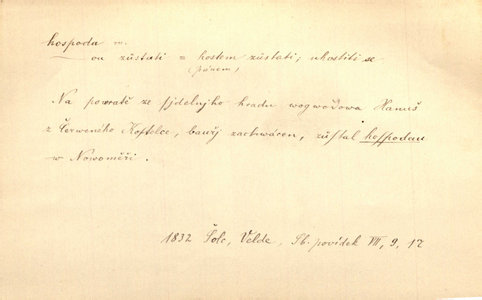 hospoda m.
ou zůstati = hostem zůstati, uhostiti se
(pánem)
Na powratě ze sjdelnjho hradu wogwodowa Hanuš
z Čerweného Kostelce, bauřj zachwácen, zůstal hospodau
w Nowoměři.
1832 Šolc, Velde, Sb. povídek VII, 9, 12